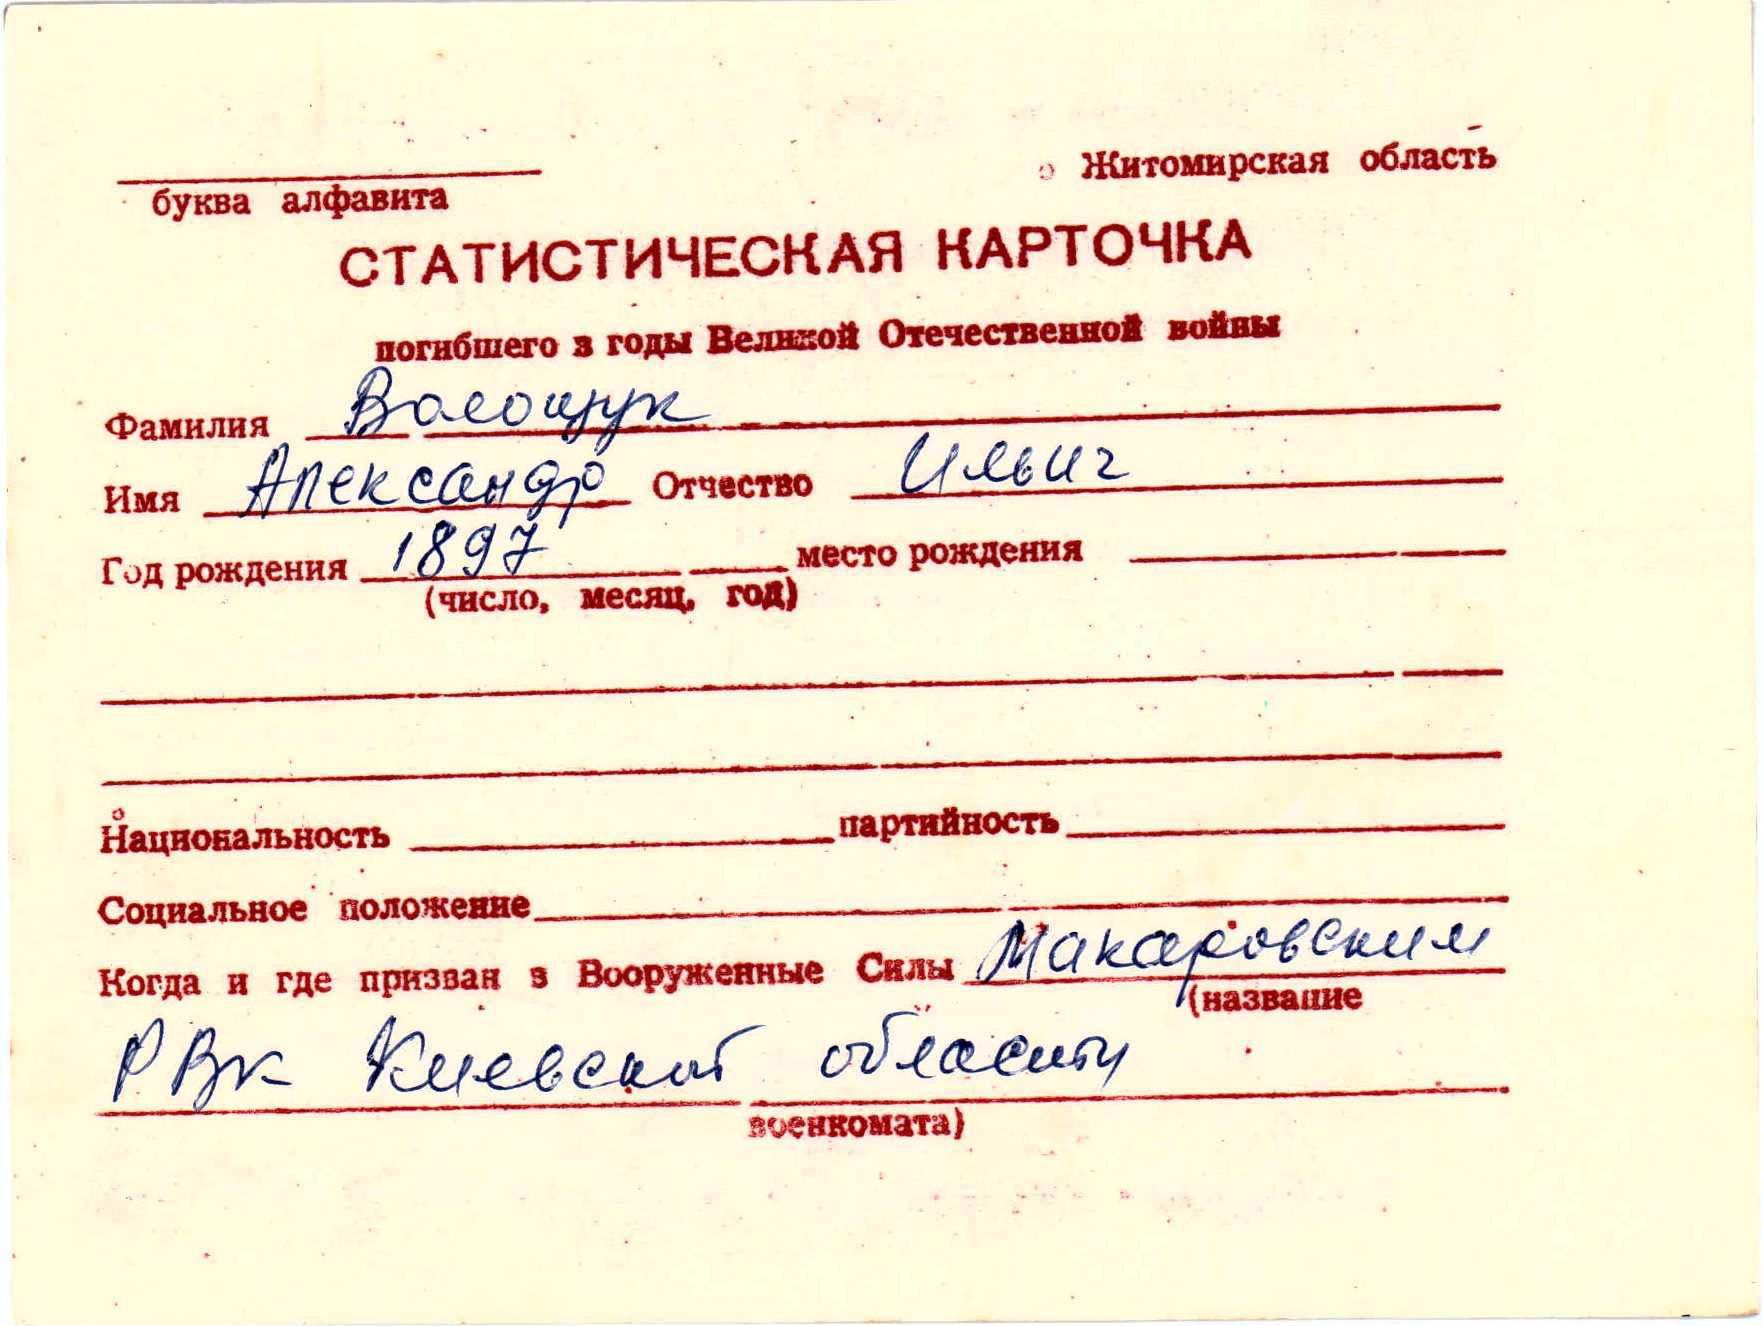 Житомирская область
буква алфавита
СТАТИСТИЧЕСКАЯ КАРТОЧКА
погибшего в годы Великой Отечественной войны
Фамилия Волощук
Имя Александр Отчество Ильич
Год рождения 1897 место рождения
(число, месяц, год)
Национальность партийность
Социальное положение
Когда и где призван в Вооруженные Силы Макаровским
(название
РВк Киевской области
военкомата)